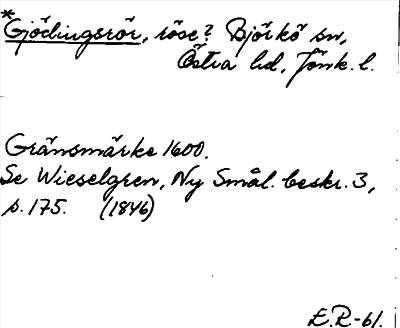 *Gjödingsrör, röse? Björkö sn,
Östra hd, Jönk. l.
Gränsmärke 1600.
Se Wieselgren, Ny Smål. beskr. 3,
s. 175. (1846)
E.R-61.